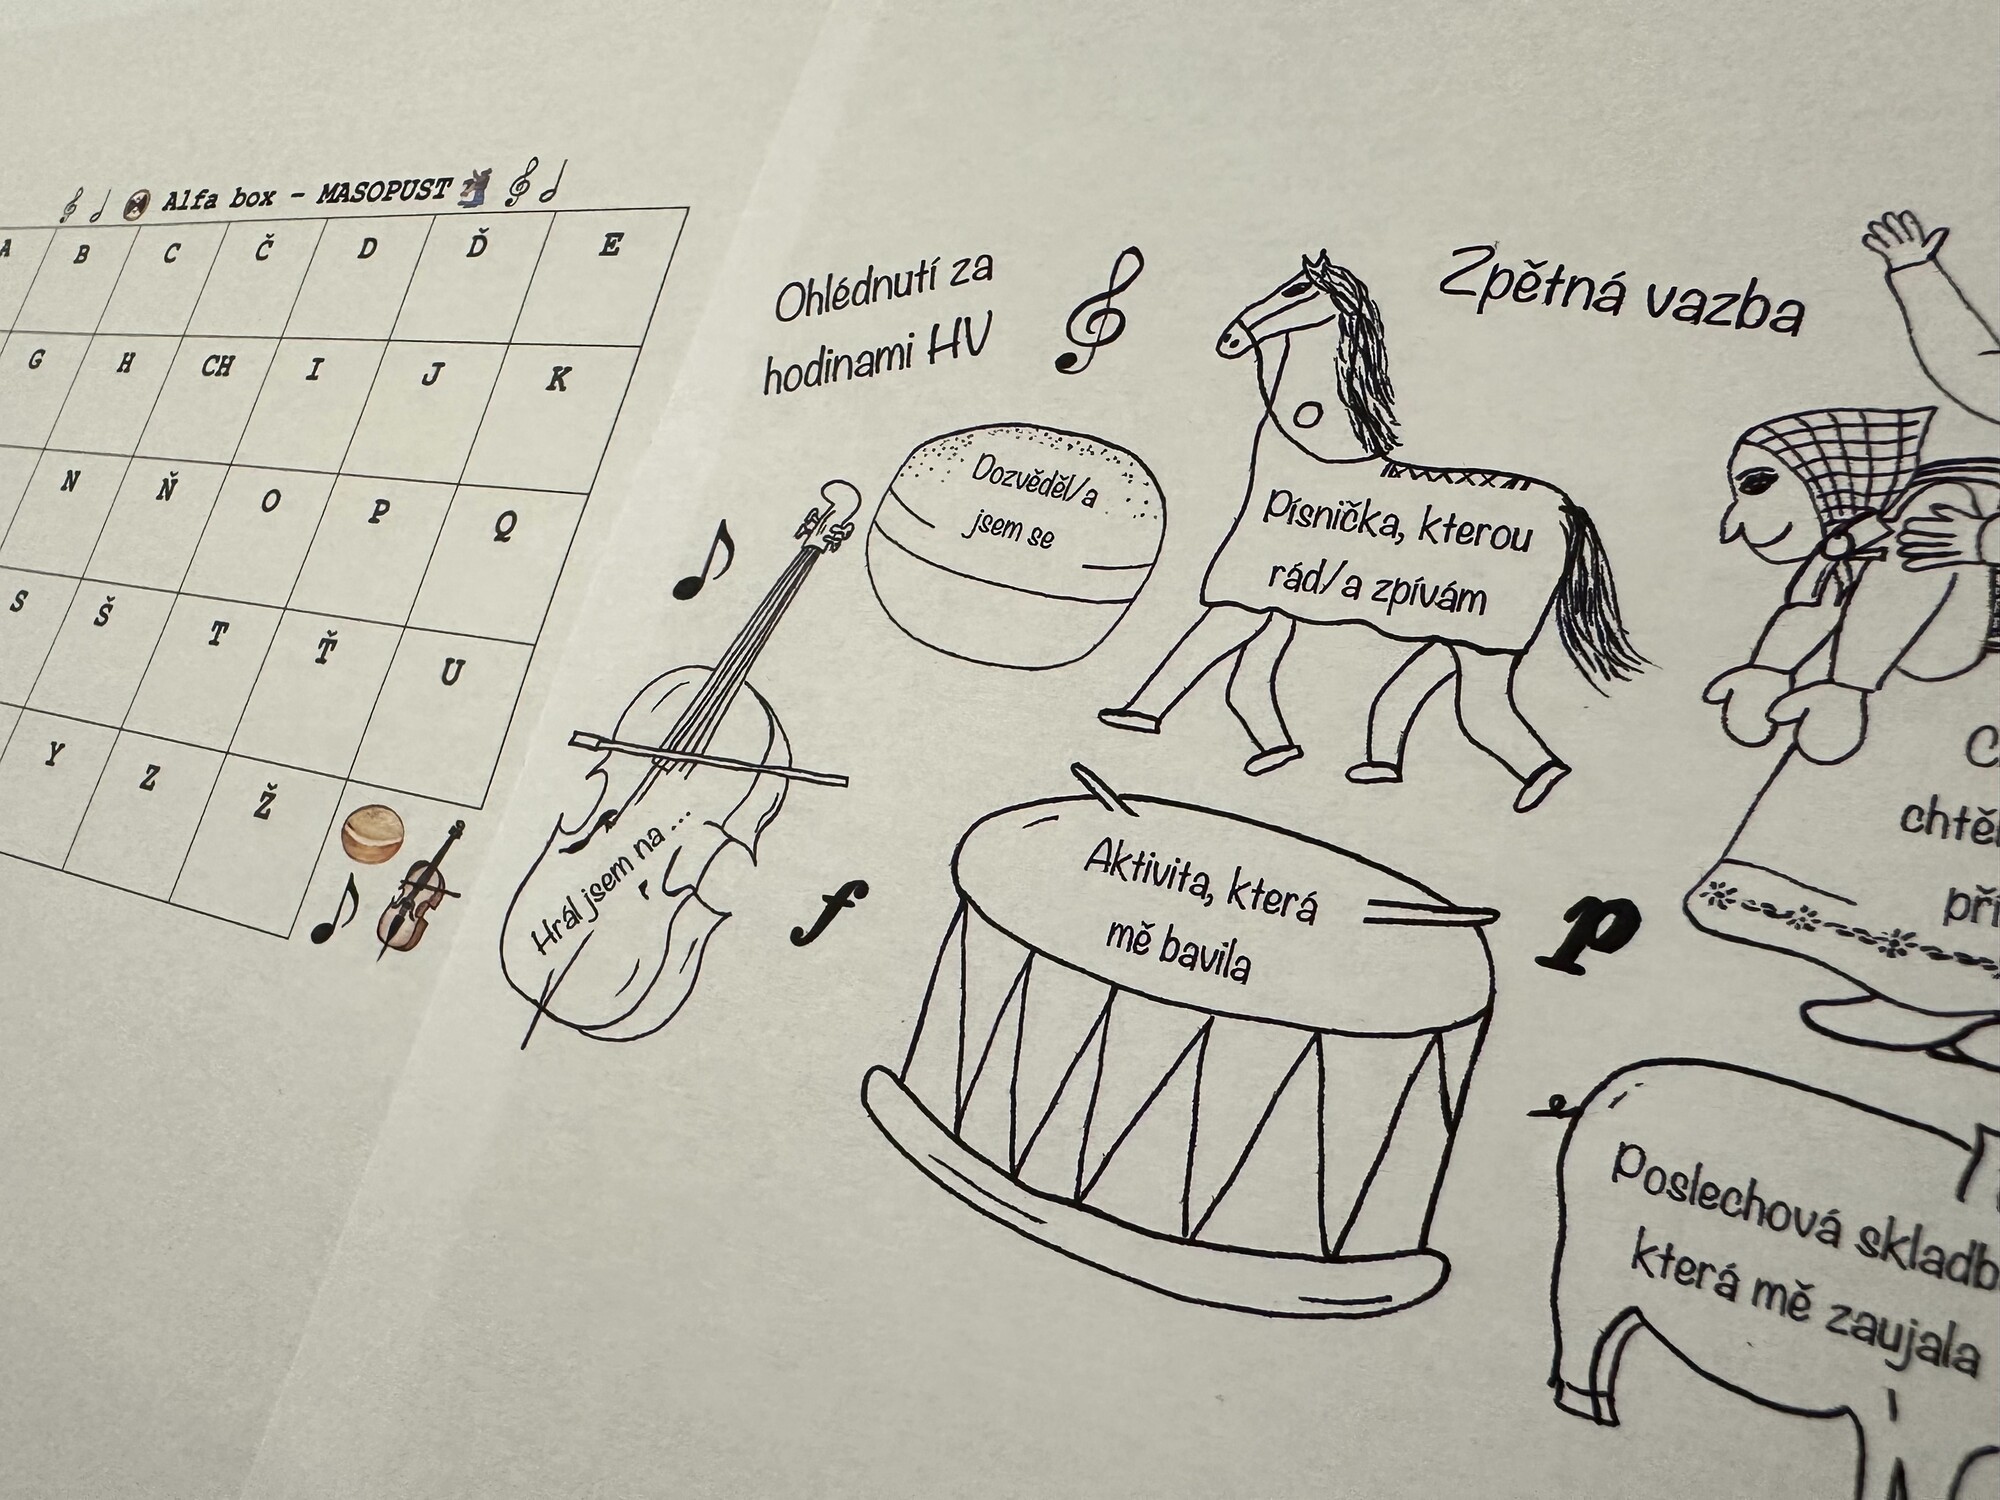 Alfa box - MASOPUST
A B C Č D Ď E
G H CH I J K
N Ň O P Q
S Š T Ť U
Y Z Ž
Ohlédnutí za
hodinami HV
Zpětná vazba
Dozvěděl/a
jsem se
Písnička, kterou
rád/a zpívám
Hrál jsem na ...
f
Aktivita, která
mě bavila
p
Poslechová
která mě zaujala